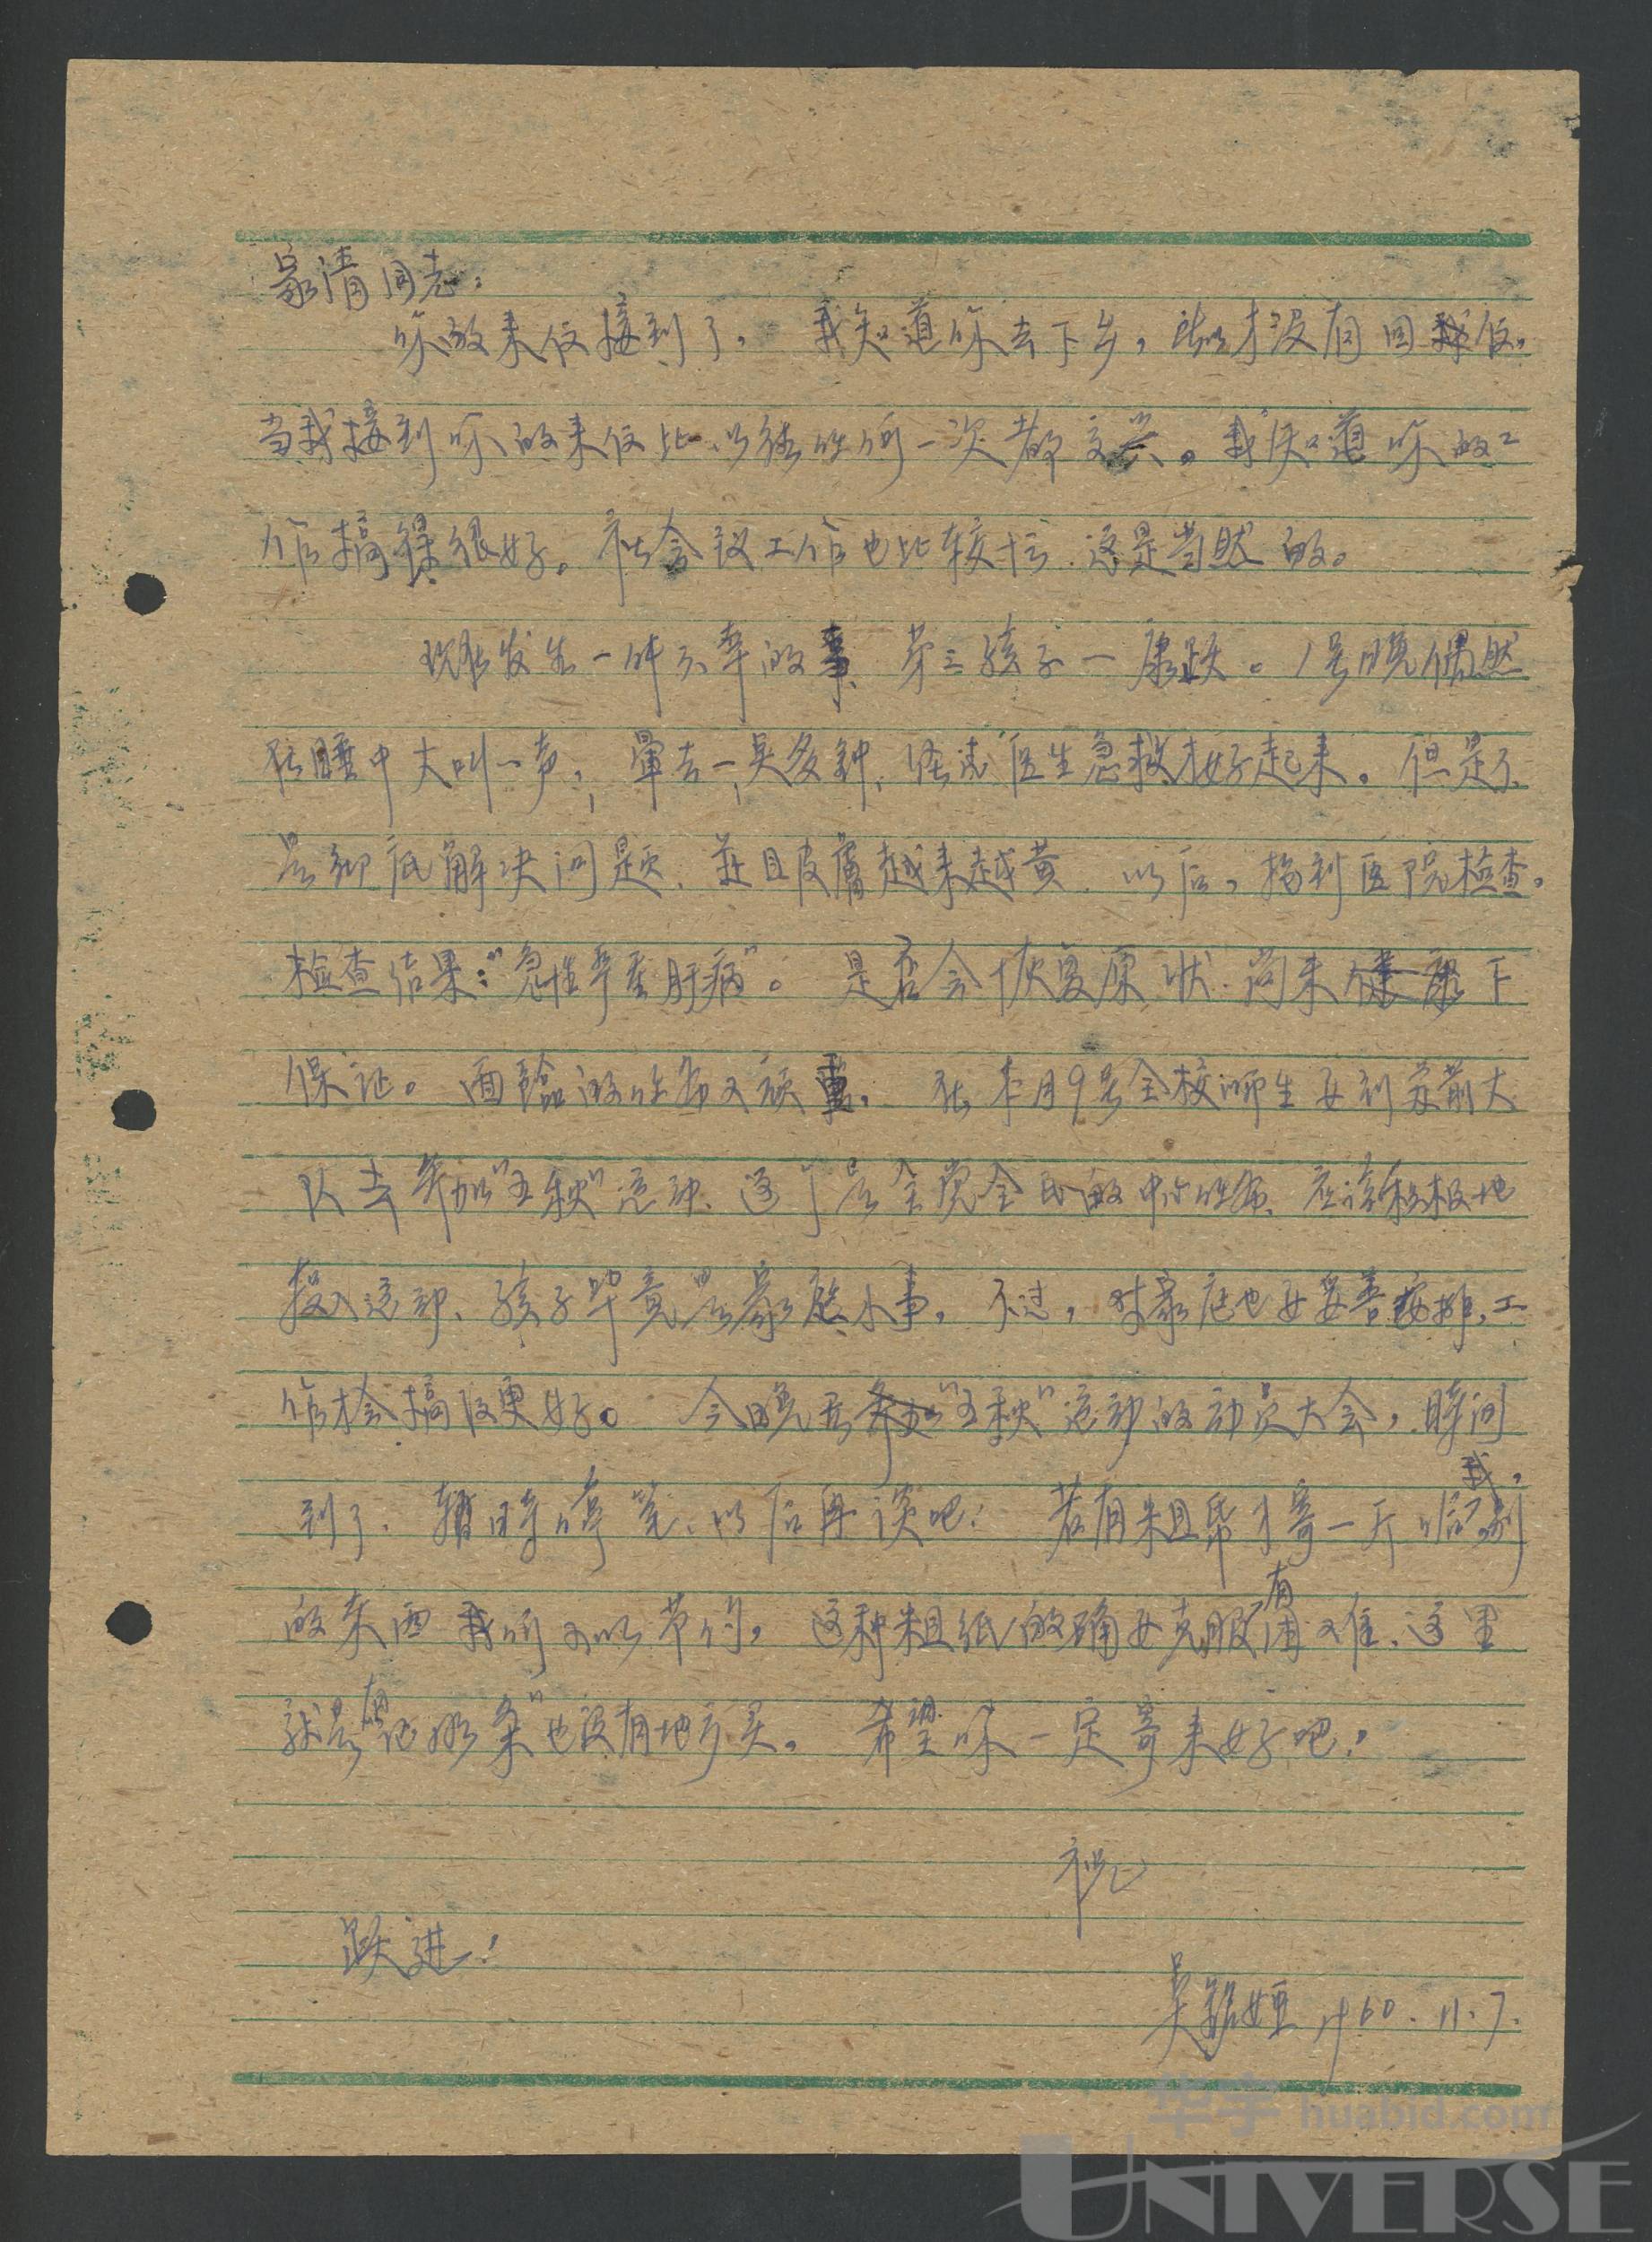 家清同志：
你的来信接到了，我知道你去下乡，所以才没有回信。
当我接到你的来信比以往任何一次都高兴。我知道你的工
作搞得很好。社会议工作也比较忙，这是当然的。
现在发生一件不幸的事，第三孩子一康跃。1号晚偶然
在睡中大叫一声，晕去一点多钟，经过医生急救才好起来。但是不
是彻底解决问题，并且皮膚越来越黄，以后，搞到医院检查。
检查结果："急性严重肝病"。是否会恢复原状，尚未下
保证。面临的任务又艰重，在本月9号全校师生要到前大
队去参加"三秋"运动，这个是全党全民的中心任务，应该积极地
投入运动，孩子毕竟是家庭小事，不过，对家庭也要妥善安排，工
作才会搞得更好。今晚要参加"三秋"运动的动员大会，時间
到了，暂時停笔，以后再谈吧！若有粗纸寄一斤给我，别
的东西我们可以节约，这种粗纸的确要克服有困难，这里
就是有也没有地方买。希望你一定寄来好吧！
祝
跃进！
吴銘娅 1960.11.7.
华宇 huabid.com
UNIVERSE